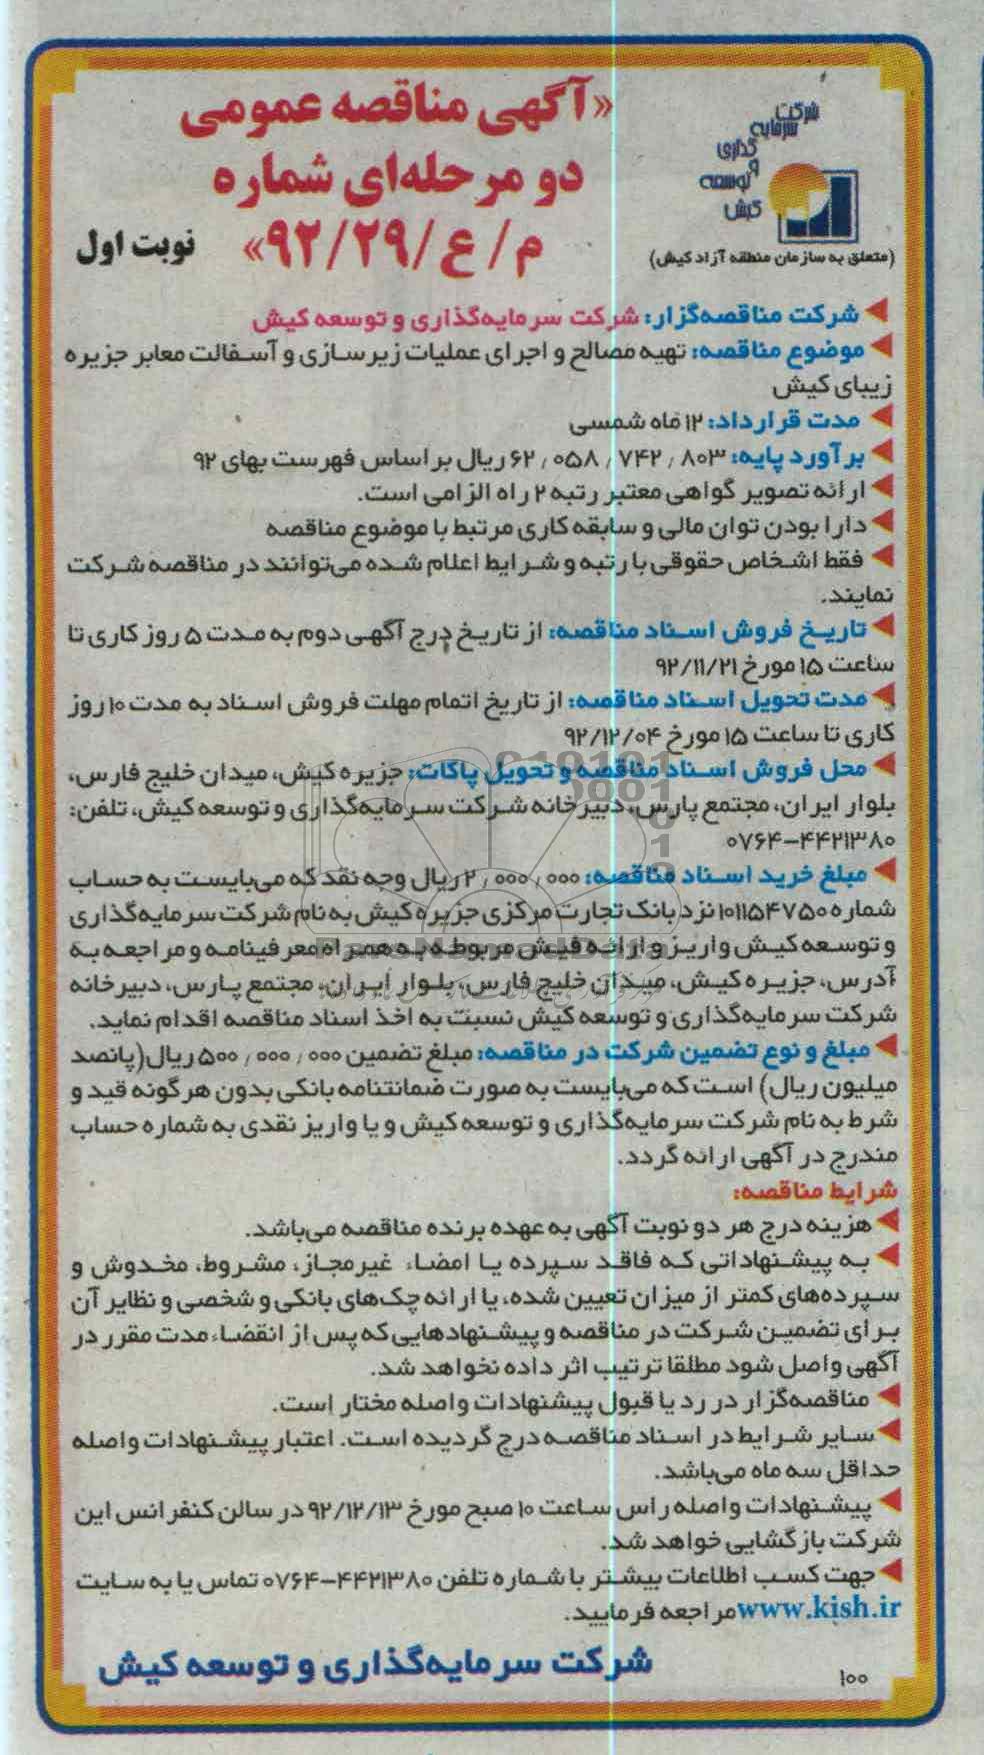 شرکت
سرمایه
گذاری
و
توسعه
کیش
(متعلق به سازمان منطقه آزاد کیش)
«آگهی مناقصه عمومی
دو مرحله‌ای شماره
م/ع/۹۲/۲۹»
نوبت اول
شرکت مناقصه‌گزار: شرکت سرمایه‌گذاری و توسعه کیش
موضوع مناقصه: تهیه مصالح و اجرای عملیات زیرسازی و آسفالت معابر جزیره
زیبای کیش
مدت قرارداد: ۱۲ ماه شمسی
برآورد پایه: ۶۲٫۰۵۸٫۷۴۲٫۸۰۳ ریال براساس فهرست بهای ۹۲
ارائه تصویر گواهی معتبر رتبه ۲ راه الزامی است.
دارا بودن توان مالی و سابقه کاری مرتبط با موضوع مناقصه
فقط اشخاص حقوقی با رتبه و شرایط اعلام شده می‌توانند در مناقصه شرکت
نمایند.
تاریخ فروش اسناد مناقصه: از تاریخ درج آگهی دوم به مدت ۵ روز کاری تا
ساعت ۱۵ مورخ ۹۲/۱۱/۲۱
مدت تحویل اسناد مناقصه: از تاریخ اتمام مهلت فروش اسناد به مدت ۱۰ روز
کاری تا ساعت ۱۵ مورخ ۹۲/۱۲/۰۴
محل فروش اسناد مناقصه و تحویل پاکات: جزیره کیش، میدان خلیج فارس،
بلوار ایران، مجتمع پارس، دبیرخانه شرکت سرمایه‌گذاری و توسعه کیش، تلفن:
۰۷۶۴-۴۴۲۱۳۸۰
مبلغ خرید اسناد مناقصه: ۲٫۰۰۰٫۰۰۰ ریال وجه نقد که می‌بایست به حساب
شماره ۱۰۱۱۵۴۷۵۰ نزد بانک تجارت مرکزی جزیره کیش به نام شرکت سرمایه‌گذاری
و توسعه کیش واریز و ارائه فیش مربوطه به همراه معرفینامه و مراجعه به
آدرس، جزیره کیش، میدان خلیج فارس، بلوار ایران، مجتمع پارس، دبیرخانه
شرکت سرمایه‌گذاری و توسعه کیش نسبت به اخذ اسناد مناقصه اقدام نماید.
مبلغ و نوع تضمین شرکت در مناقصه: مبلغ تضمین ۵۰۰٫۰۰۰٫۰۰۰ ریال(پانصد
میلیون ریال) است که می‌بایست به صورت ضمانتنامه بانکی بدون هرگونه قید و
شرط به نام شرکت سرمایه‌گذاری و توسعه کیش و یا واریز نقدی به شماره حساب
مندرج در آگهی ارائه گردد.
شرایط مناقصه:
هزینه درج هر دو نوبت آگهی به عهده برنده مناقصه می‌باشد.
به پیشنهاداتی که فاقد سپرده یا امضاء غیرمجاز، مشروط، مخدوش و
سپرده‌های کمتر از میزان تعیین شده، یا ارائه چک‌های بانکی و شخصی و نظایر آن
برای تضمین شرکت در مناقصه و پیشنهادهایی که پس از انقضاء مدت مقرر در
آگهی واصل شود مطلقا ترتیب اثر داده نخواهد شد.
مناقصه‌گزار در رد یا قبول پیشنهادات واصله مختار است.
سایر شرایط در اسناد مناقصه درج گردیده است. اعتبار پیشنهادات واصله
حداقل سه ماه می‌باشد.
پیشنهادات واصله راس ساعت ۱۰ صبح مورخ ۹۲/۱۲/۱۳ در سالن کنفرانس این
شرکت بازگشایی خواهد شد.
جهت کسب اطلاعات بیشتر با شماره تلفن ۰۷۶۴-۴۴۲۱۳۸۰ تماس یا به سایت
www.kish.ir مراجعه فرمایید.
شرکت سرمایه‌گذاری و توسعه کیش
۱۰۰